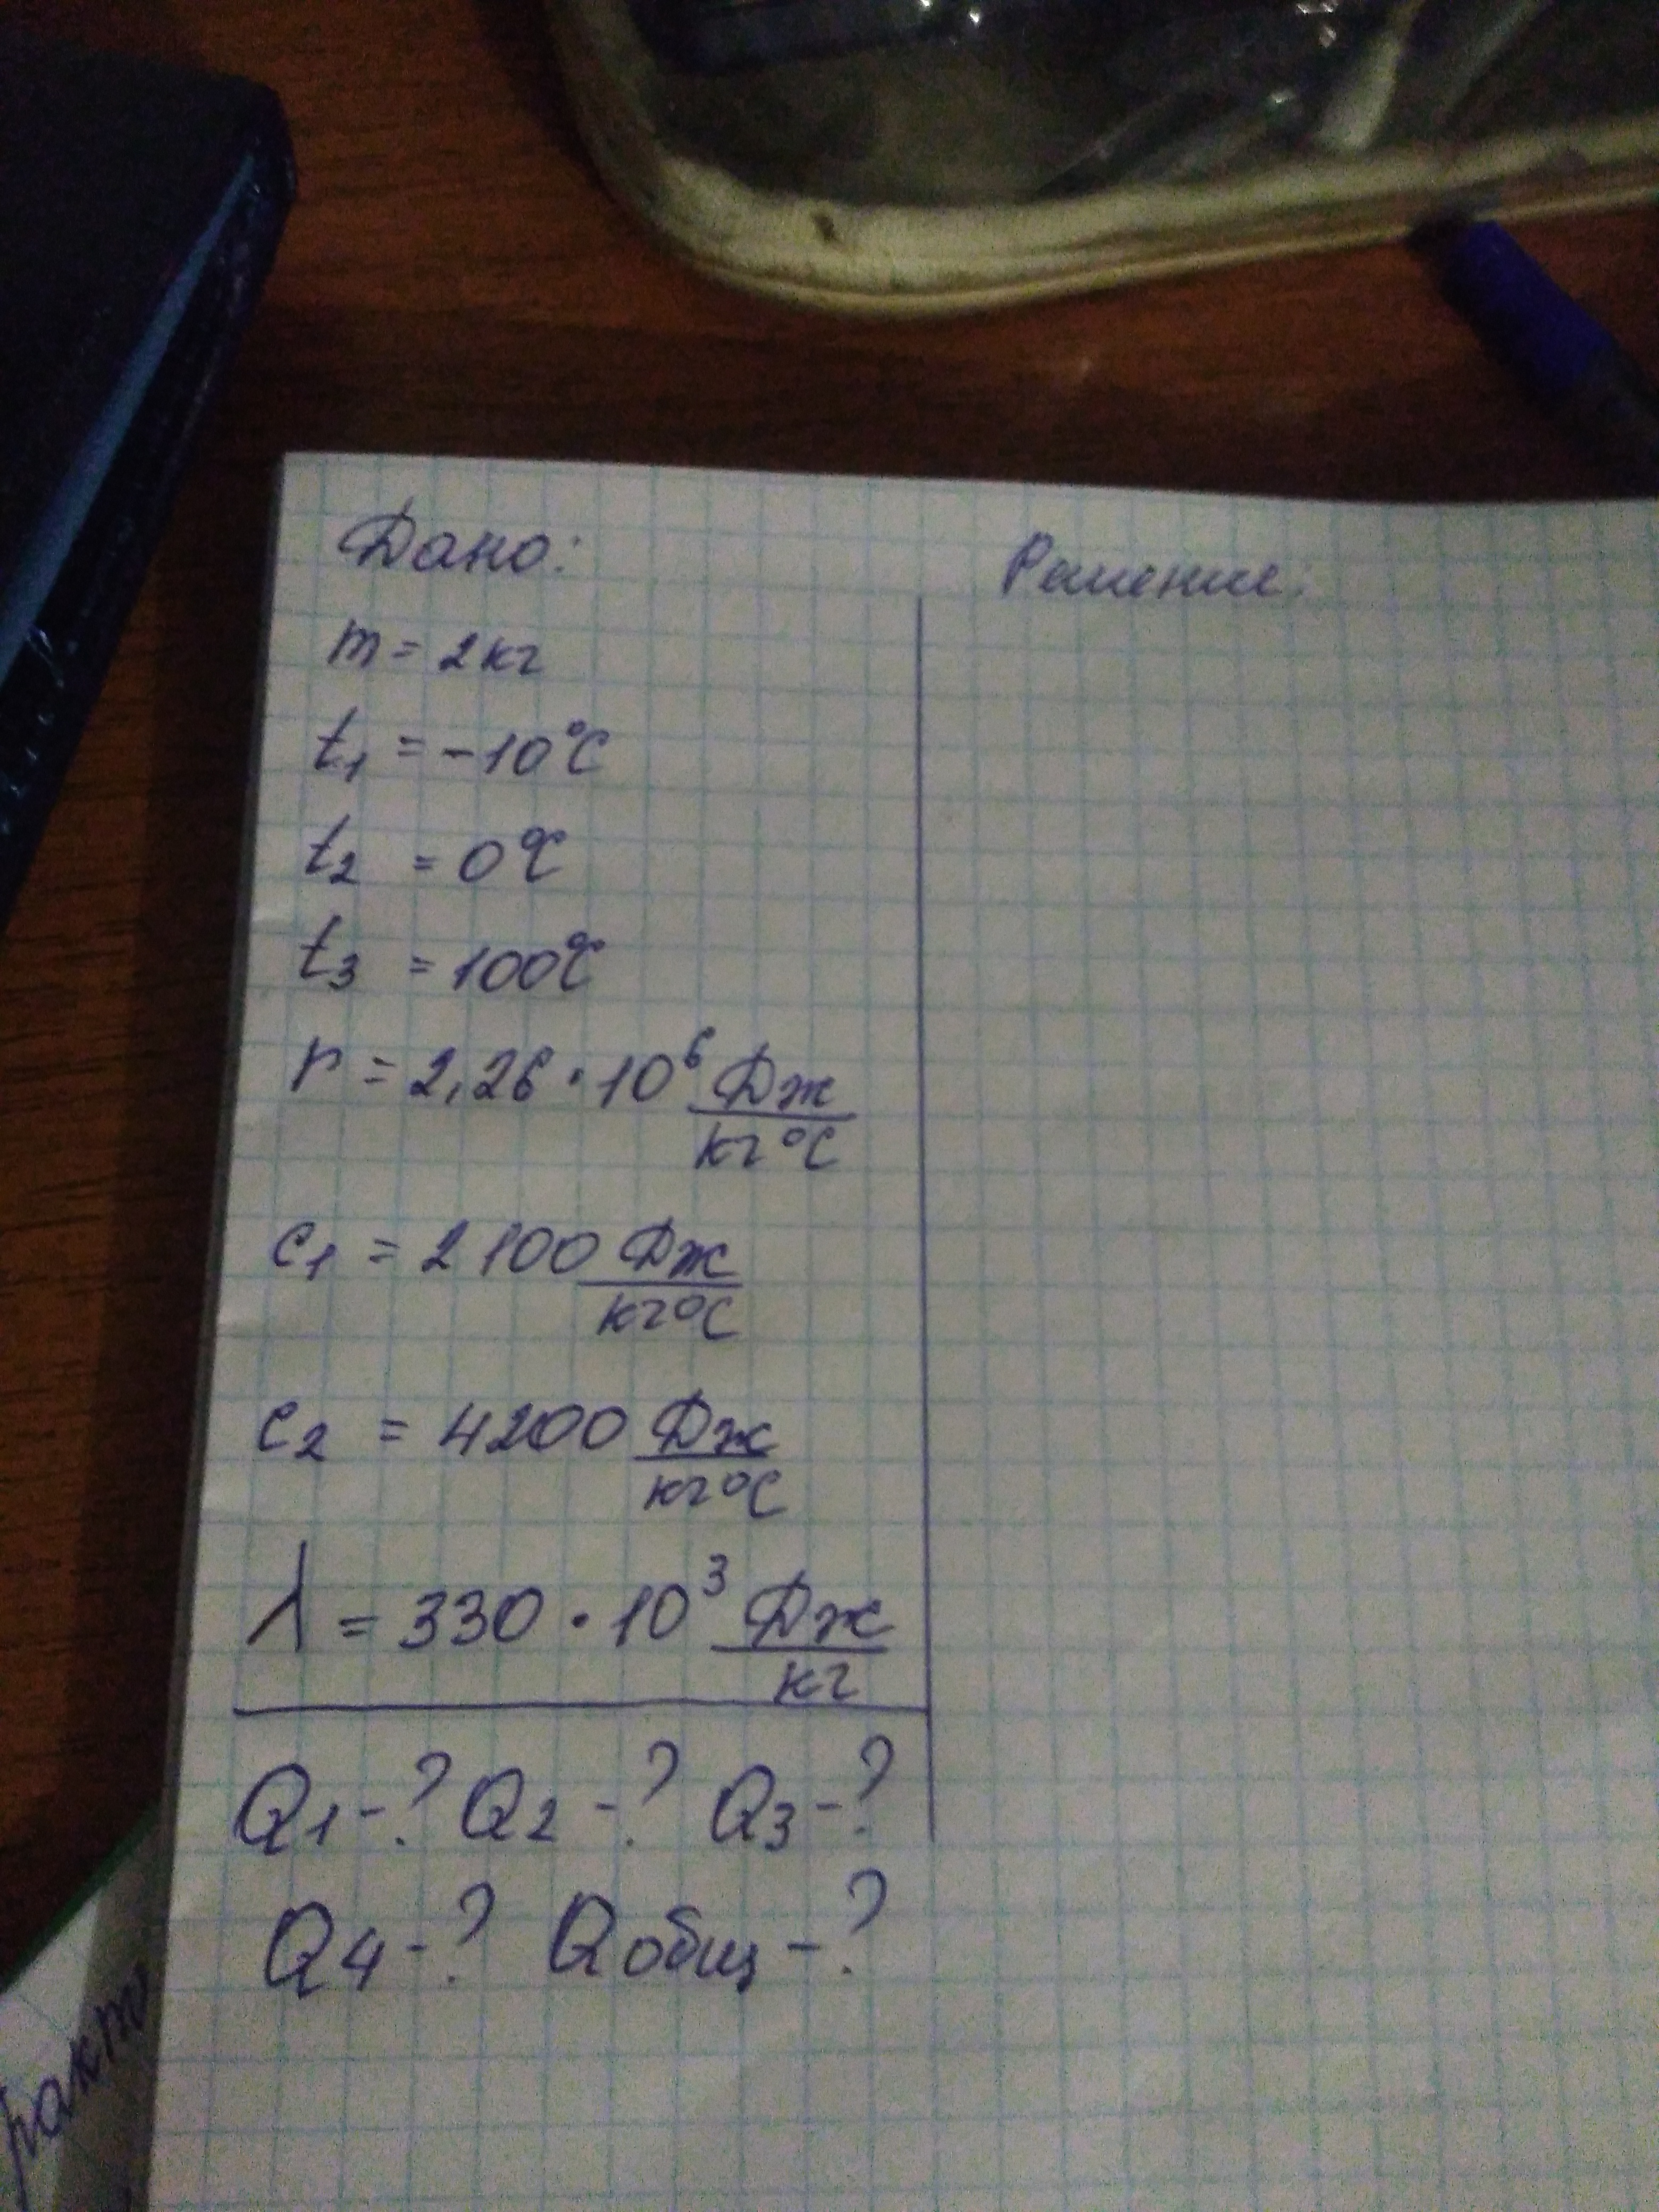 Дано:
Решение:
m = 2кг
t₁ = -10°C
t₂ = 0°C
t₃ = 100°C
r = 2,26 · 10⁶ Дж
кг°C
c₁ = 2100 Дж
кг°C
c₂ = 4200 Дж
кг°C
λ = 330 · 10³ Дж
кг
Q₁-? Q₂-? Q₃-?
Q₄-? Qобщ-?